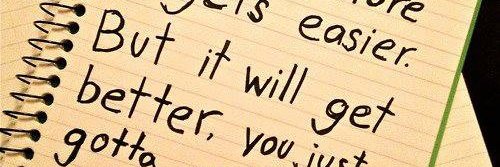 gets easier.
But it will get
better, you just
gotta